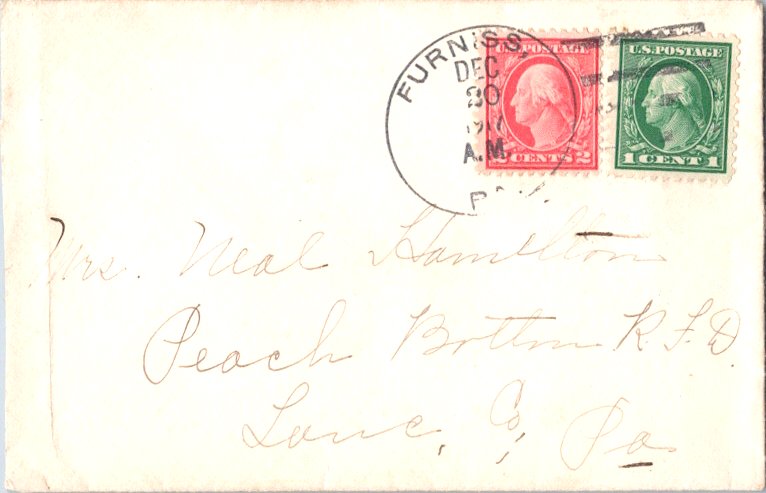 FURNISS,
DEC
20
1917
A.M.
PA.
U.S. POSTAGE
2 CENTS 2
U.S. POSTAGE
1 CENT 1
Mrs. Neal Hamilton
Peach Bottom R.F.D.
Lanc, Co, Pa